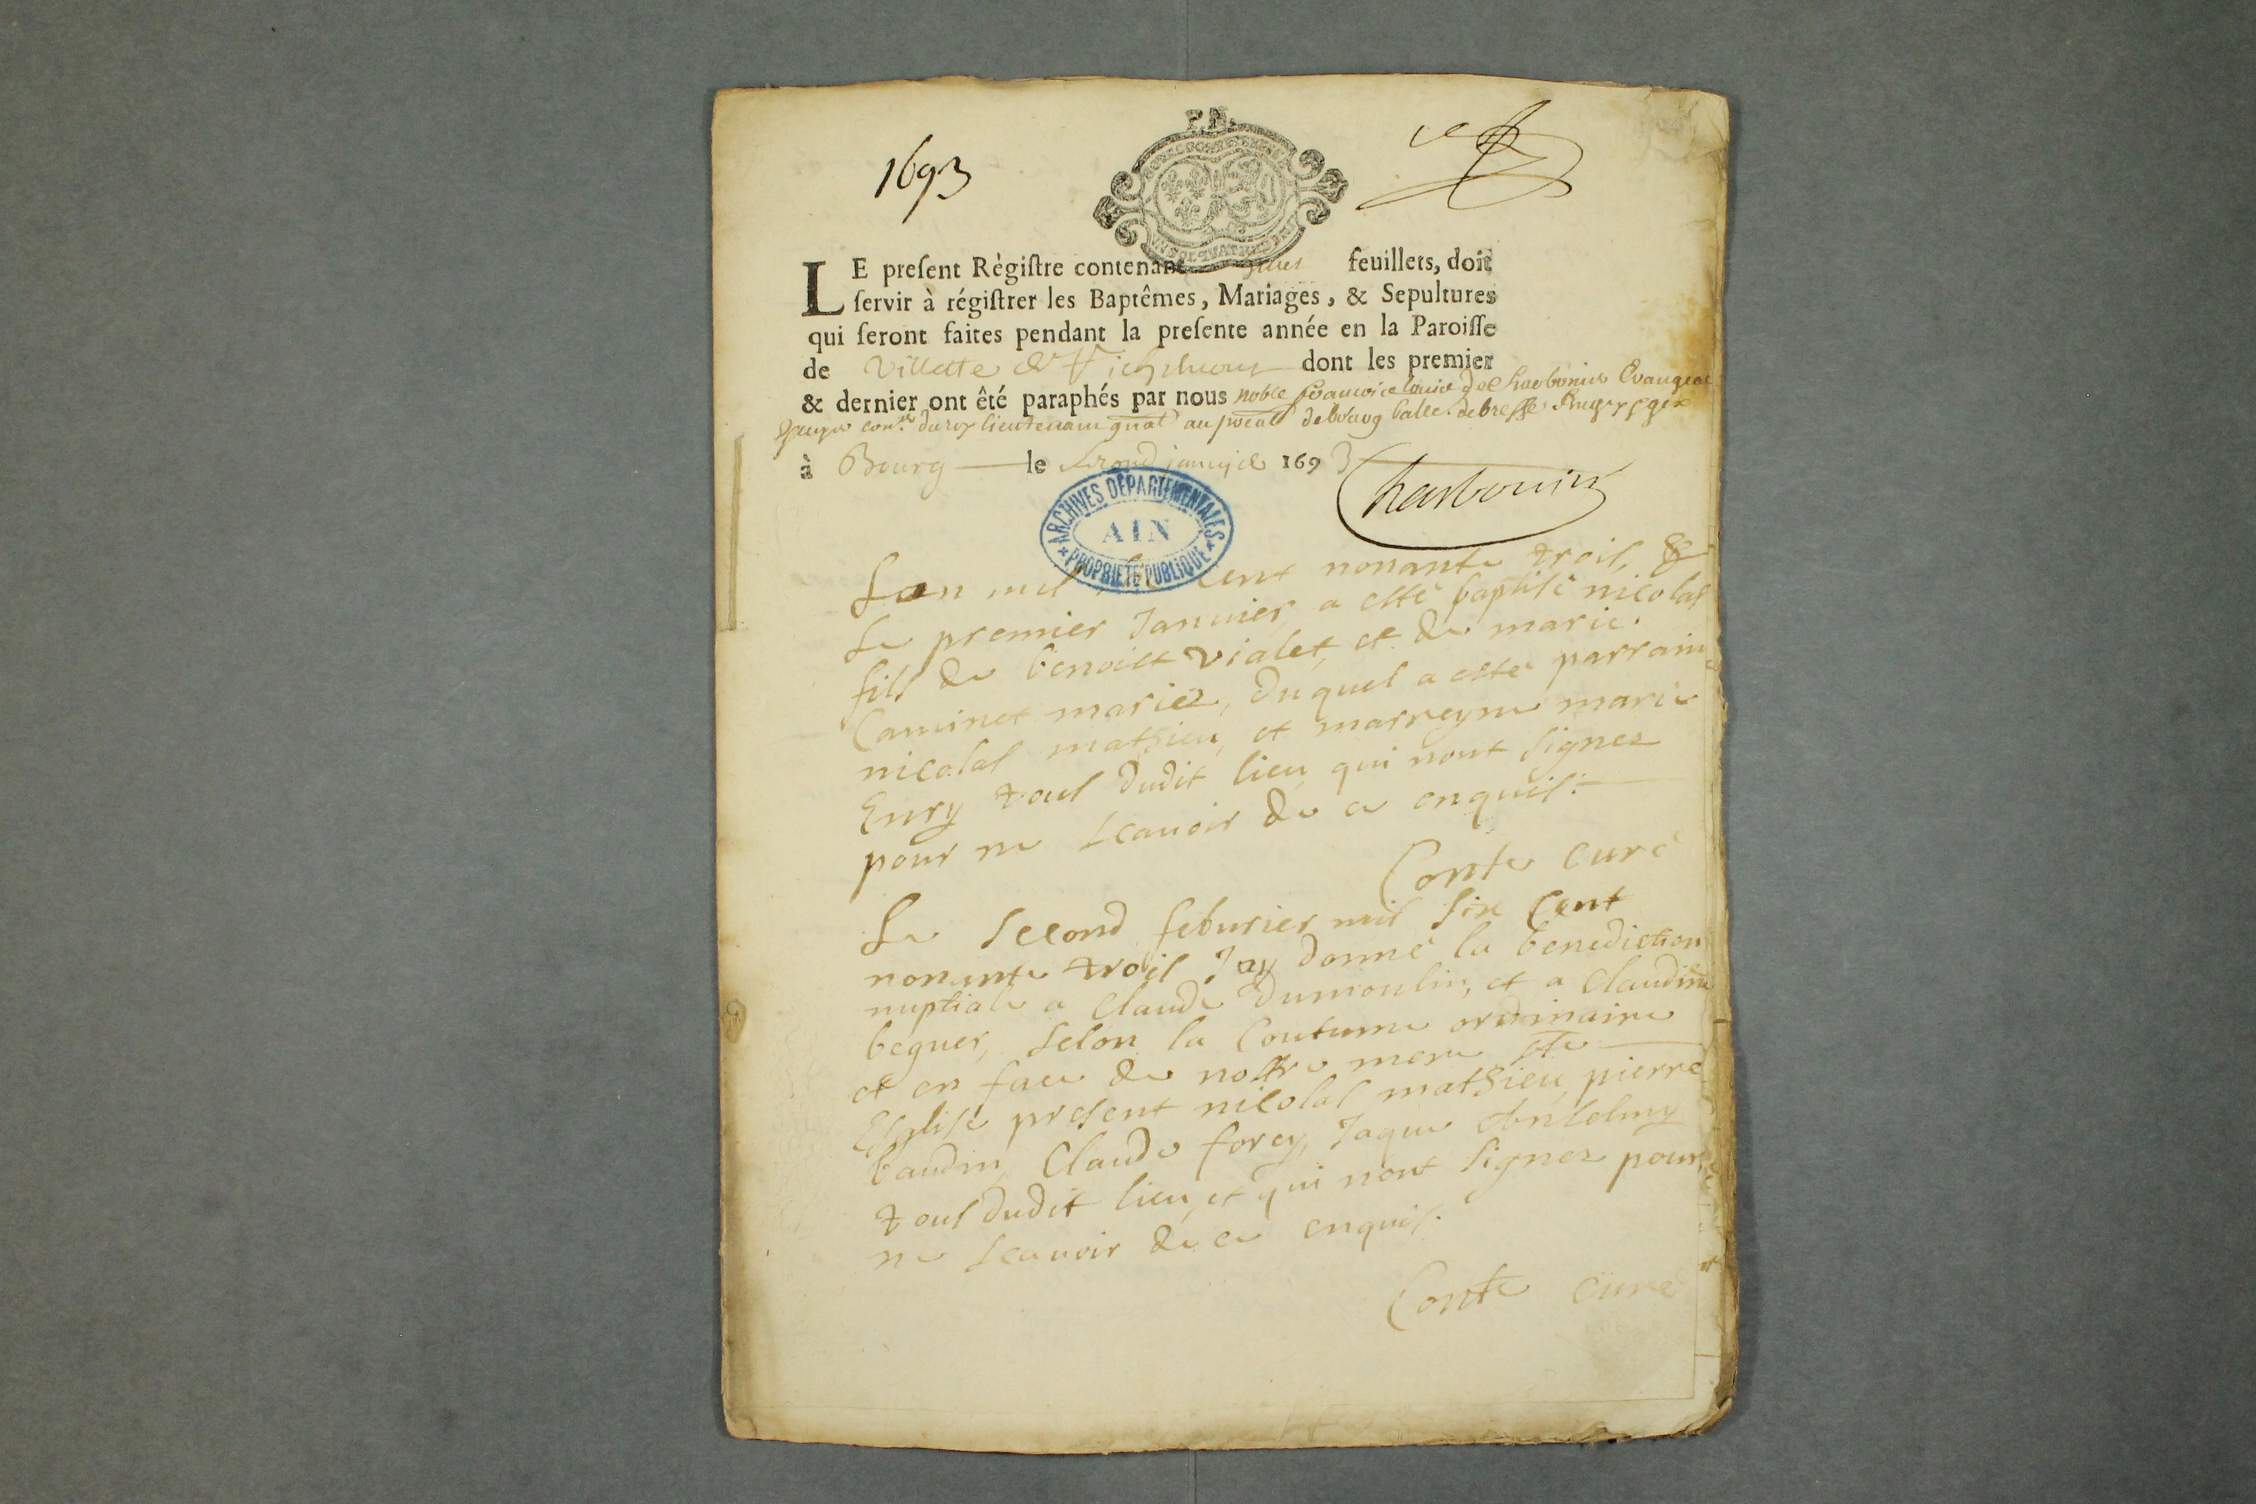 1693
P.N.
LE present Règistre contenant feuillets, doit
servir à régistrer les Baptêmes, Mariages, & Sepultures
qui seront faites pendant la presente année en la Paroisse
de Villette & dont les premier
& dernier ont êté paraphés par nous noble
du roy lieutenant gnal au pcial de bourg de bresse
à Bourg le second janvier 1693
Charbonier
ARCHIVES DÉPARTEMENTALES
AIN
PROPRIÉTÉ PUBLIQUE
Lan mil cent nonante trois, &
Le premier Januier a esté baptisé nicolas
fils de benoict vialet, et de marie
Caminet mariez, duquel a esté parrain
nicolas mathieu, et marreyne marie
Enry tous dudit lieu qui nont signez
pour ne scauoir de ce enquis.
Conte curé
Le second feburier mil six cent
nonante trois Jay donné la benediction
nuptiale a Claude Dumoulin, et a Claudine
beguer, selon la Coutume ordinaire
et en face de nostre mere ste
Esglise present nicolas mathieu, pierre
baudin, Claude forey, Jaque Anselmy
tous dudit lieu, et qui nont signez pour
ne scauoir de ce enquis.
Conte curé